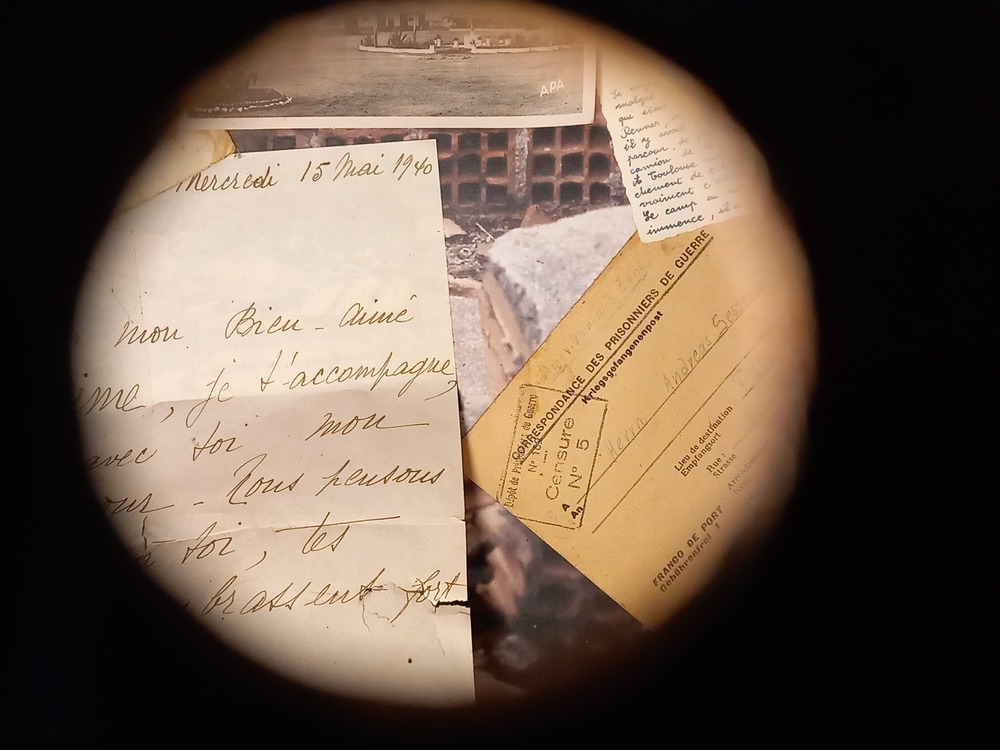 APA
Mercredi 15 Mai 1940
mon Bien-aimé
je t'accompagne,
avec toi mon
Nous pensons
toi, tes
brassent fort
malgré
que
Rennes,
il y avait
parcour, de
camion de
à Toulouse
chement de
vraiment
Le camp
immence, il
CORRESPONDANCE DES PRISONNIERS DE GUERRE
Kriegsgefangenenpost
Dépôt de Guerre
Censure
N° 5
Herrn Andreas
Lieu de destination
Empfangsort
Rue:
Strasse
FRANCO DE PORT
Gebührenfrei!